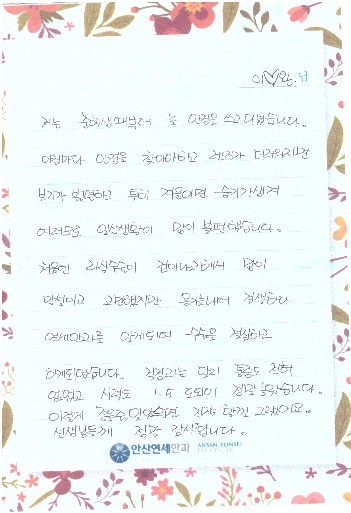 이♡완님
저는 중학생때부터 늘 안경을 쓰고 다녔습니다.
아침마다 안경을 찾아야하고 렌즈가 더러워지면
보기가 불편하고 특히 겨울이면 습기가생겨
여러모로 일상생활이 많이 불편했습니다.
처음엔 라식수술이 겁이나기에 많이
망설이고 고민했지만 용기내어 검색하다
연세안과를 알게되어 수술을 결심하고
하게되었습니다. 걱정과는 달리 통증도 전혀
없었고 시력도 1.5 도되어 정말 놀랐습니다.
이렇게 좋은줄 알았으면 진작 할껄 그랬어요.
선생님들께 정말 감사합니다.
안산연세안과 ANSAN YONSEI
EYE CENTER